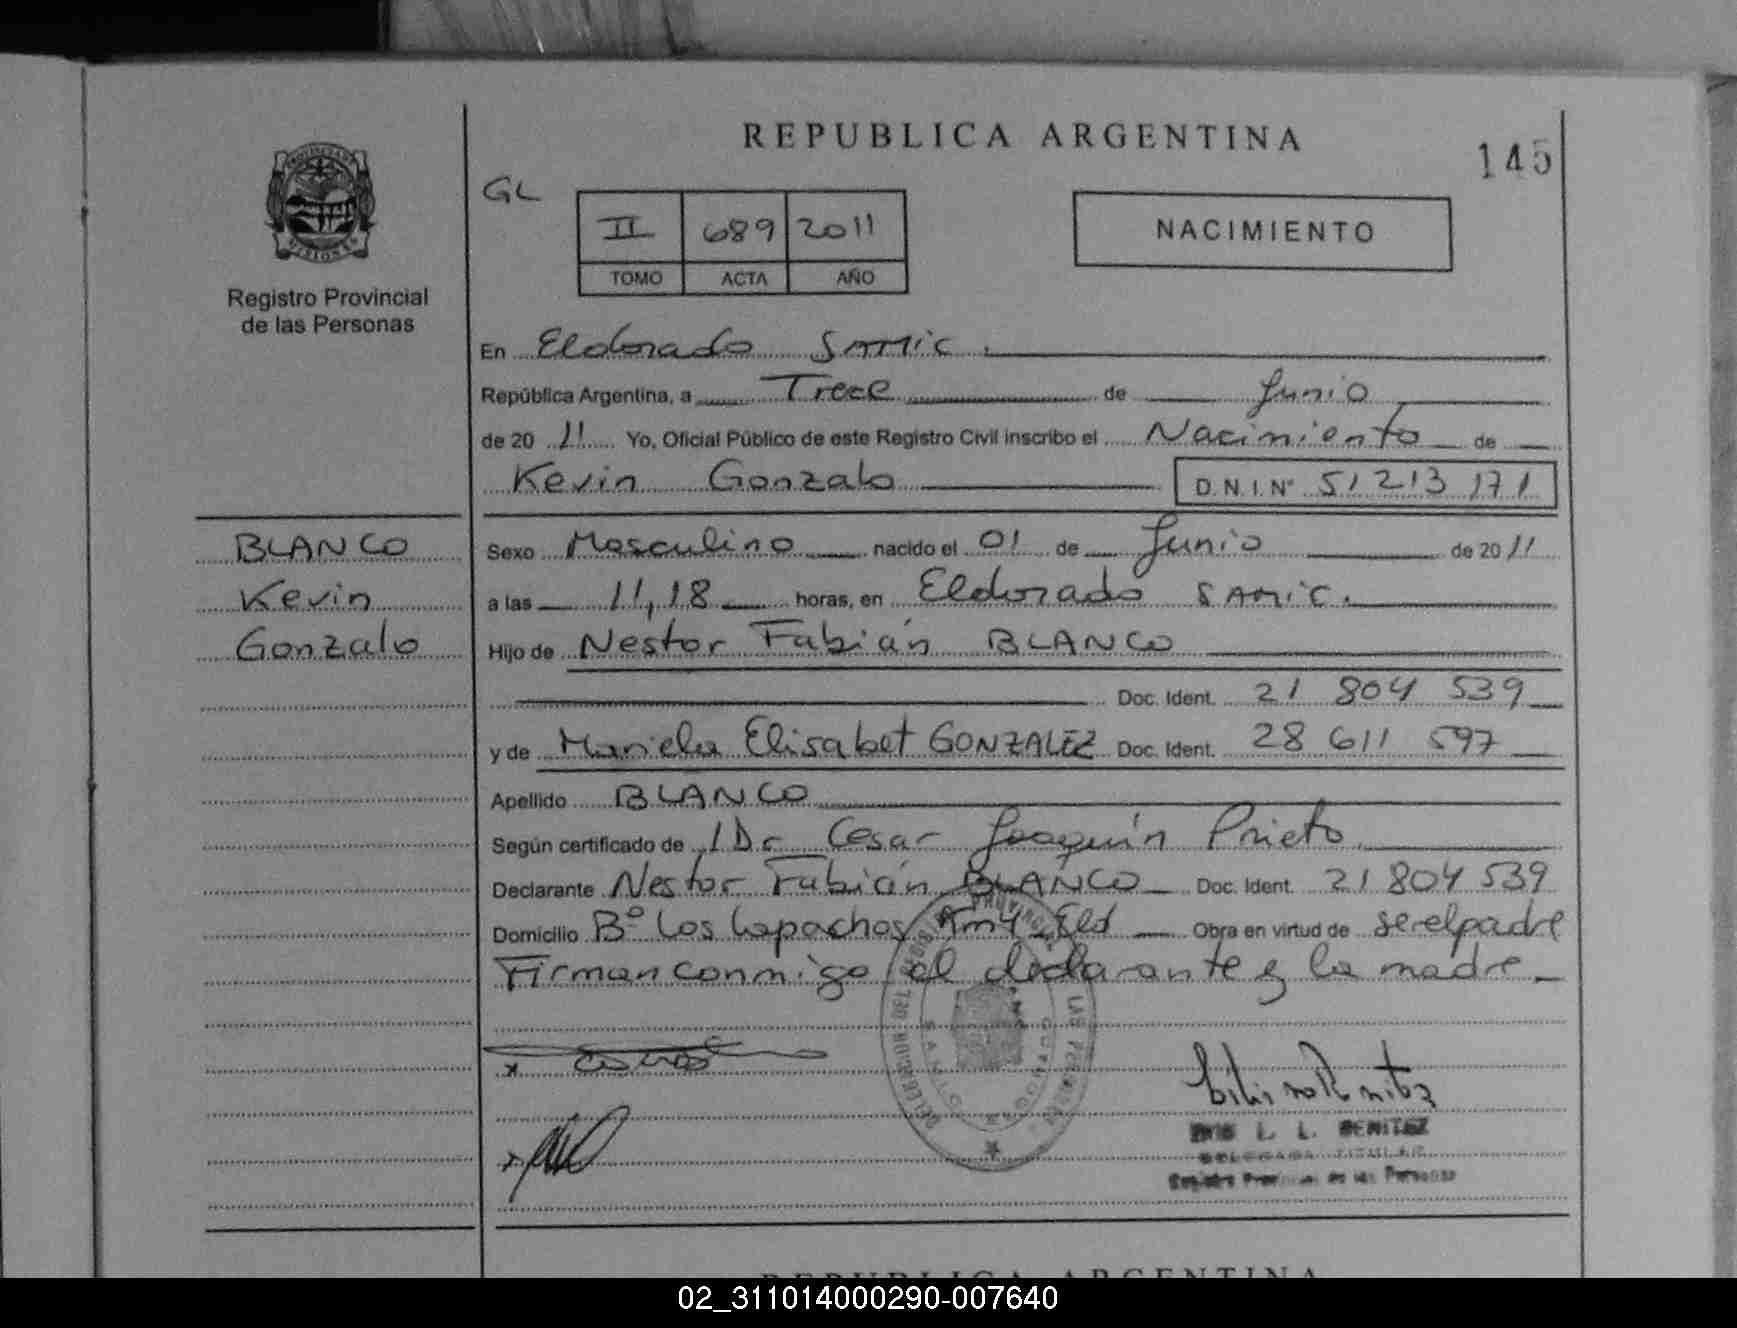 REPUBLICA ARGENTINA
145
GL
II 689 2011
TOMO ACTA AÑO
NACIMIENTO
Registro Provincial
de las Personas
En Eldorado SAMIC.
República Argentina, a Trece de Junio
de 2011 Yo, Oficial Público de este Registro Civil inscribo el Nacimiento de
Kevin Gonzalo D.N.I.Nº 51 213 171
BLANCO
Kevin
Gonzalo
Sexo Masculino nacido el 01 de Junio de 2011
a las 11,18 horas, en Eldorado SAMIC.
Hijo de Nestor Fabián BLANCO
Doc. Ident. 21 804 539
y de Mariela Elisabet GONZALEZ Doc. Ident. 28 611 597
Apellido BLANCO
Según certificado de Dr Cesar Joaquín Prieto
Declarante Nestor Fabián BLANCO Doc. Ident. 21 804 539
Domicilio Bº Los Lapachos Km4 Eld Obra en virtud de ser el padre
Firman conmigo el declarante y la madre
L. L. BENITEZ
DELEGADA TITULAR
Registro Provincial de las Personas
REPUBLICA ARGENTINA
02_311014000290-007640